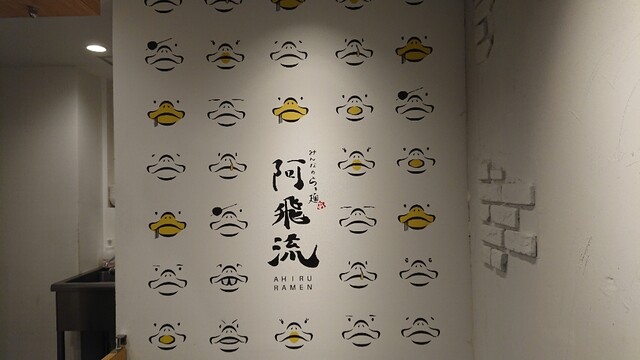 みんなのらぁ麺
阿飛流
AHIRU
RAMEN